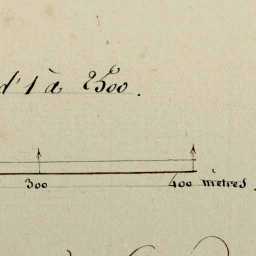 d'1 à 2500.
300 400 mètres.